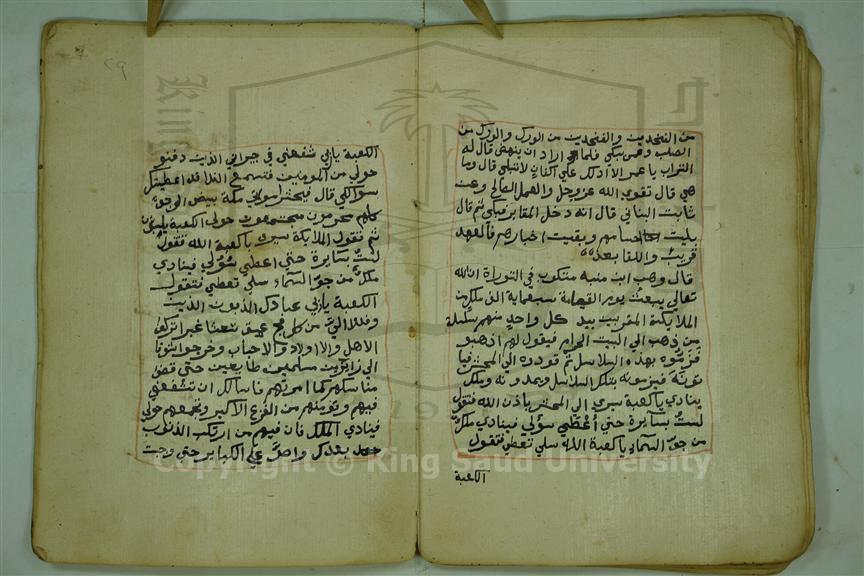 من الفخدين والفخدين من الورك والورك من
الصلب وهي تبكي فلما اراد ان ينهض قال له
التراب يا عمر الا ادلك علي اكفان لا تبلي قال وما
هي قال تقوي الله عز وجل والعمل الصالح وعن
ثابت البناني قال انه دخل المقابر فبكي ثم قال
بليت اجسامهم وبقيت اخبارهم فالعهد
قريب واللقا بعد
قال وهب ابن منبه مكتوب في التوراة ان الله
تعالي يبعث يوم القيامة سبعماية الف ملك من
الملايكة المقربين بيد كل واحد منهم سلسلة
من ذهب الي البيت الحرام فيقول لهم اذهبو
فزموه بهذه السلاسل ثم قودوه الي المحشر فيا
تونه فيزمونه بتلك السلاسل ويمدونه وملك
ينادي يا كعبة سيري الي المحشر باذن الله فتقول
لست بسايرة حتي أعطي سؤلي فينادي ملك
من جو السماء يا كعبة الله سلي تعطي فتقول
الكعبة
٢٩
الكعبة يا ربي شفعني في جيراني الذين دفنو
حولي من المومنين فتسمع الندا قد اعطيتك
سؤالكي قال فيحشر اموات مكة بيض الوجوه
كلهم محرمون مجتمعون حول الكعبة يلبون
ثم تقول الملايكة سيري يا كعبة الله فتقول
لست بسايرة حتي اعطي سؤلي فينادي
ملك من جو السماء سلي تعطي فتقول
الكعبة يا ربي عبادك الذبون الذين
وفدو الي من كل فج عميق شعثا غبرا تركو
الاهل والاولاد والاحباب وخرجوا شوقا
الي زايرين مسلمين طايعين حتي قضو
مناسكهم كما امرتهم فاسالك ان تشفعني
فيهم وتومنهم من الفزع الاكبر وتجمعهم حولي
فينادي الملك فان فيهم من ارتكب الذنوب
بعدك واصر علي الكباير حتي وجبت
King Saud University
Copyright © King Saud University